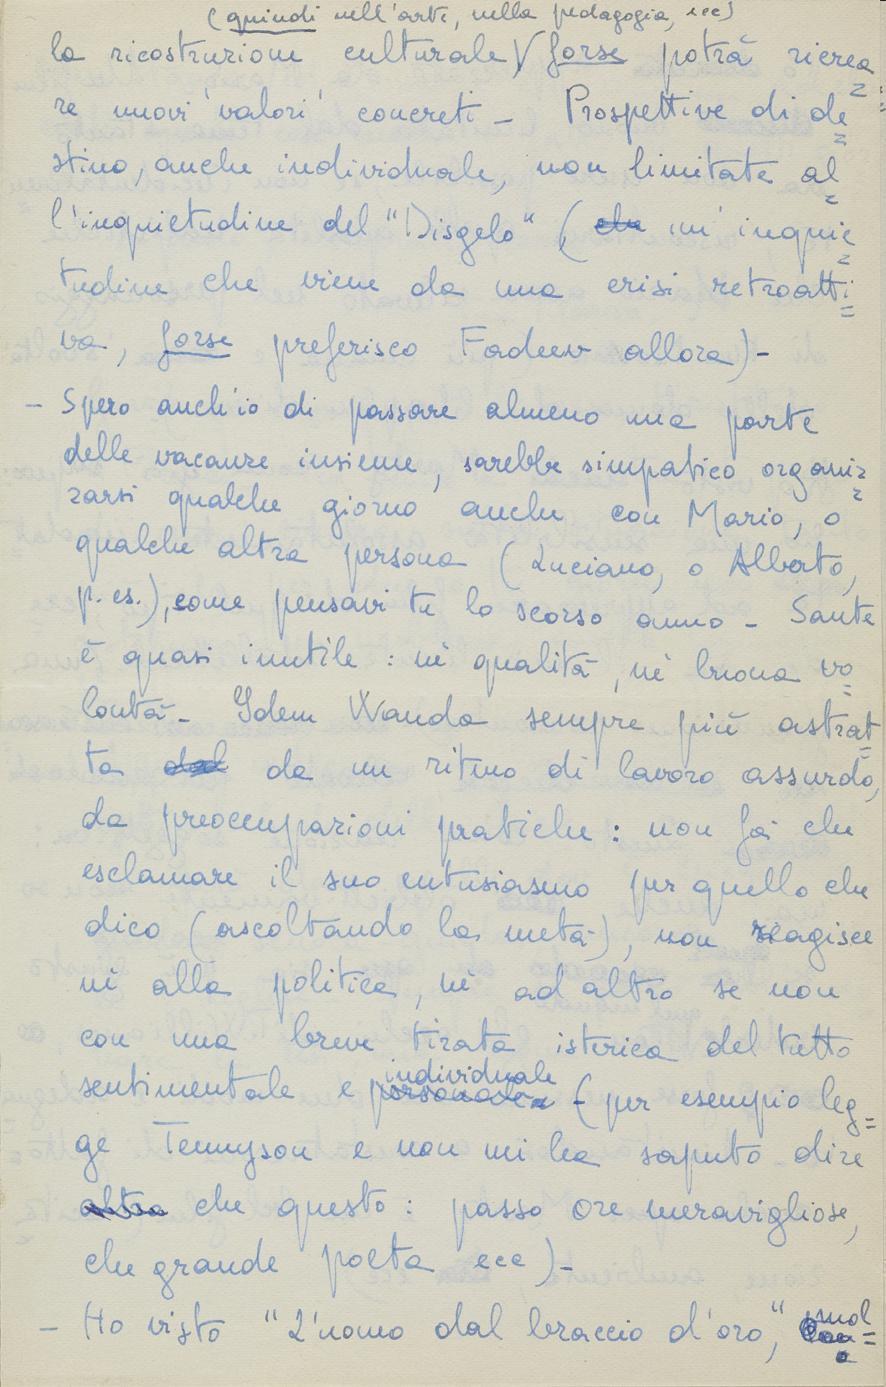 (quindi nell'arte, nella pedagogia, ecc)
la ricostruzione culturale) forse potrà ricrea=
re nuovi 'valori' concreti - Prospettive di de=
stino, anche individuale, non limitate al=
l'inquietudine del "Disgelo" (che un'inquie=
tudine che viene da una crisi retroatti=
va, forse preferisco Fadeev allora)-
- Spero anch'io di passare almeno una parte
delle vacanze insieme, sarebbe simpatico organiz=
zarsi qualche giorno anche con Mario, o
qualche altra persona (Luciano, o Alberto,
p. es.), come pensavi tu lo scorso anno - Sante
è quasi inutile : nè qualità, nè buona vo=
lontà - Idem Wanda sempre più astrat=
ta dal da un ritmo di lavoro assurdo,
da preoccupazioni pratiche : non fa che
esclamare il suo entusiasmo per quello che
dico (ascoltando la metà), non reagisce
nè alla politica, nè ad altro se non
con una breve tirata isterica del tutto
individuale
sentimentale e personale - (per esempio leg=
ge Tennyson e non mi ha saputo dire
altro che questo : passo ore meravigliose,
che grande poeta ecc) -
- Ho visto "L'uomo dal braccio d'oro,"